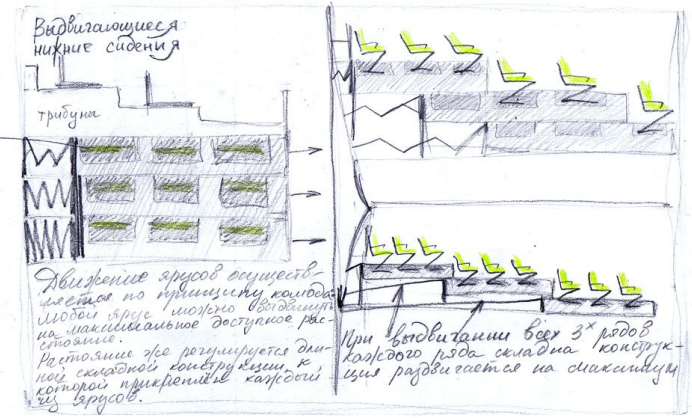 Выдвигающиеся
нижние сидения
трибуны
Движение ярусов осуществ-
ляется по принципу комода.
Любой ярус можно выдвинуть
на максимальное доступное рас-
стояние.
Растояние же регулируется дли-
ной складной конструкции к
которой прикреплён каждый
из ярусов.
При выдвигании всех 3х рядов
каждого ряда складна конструк-
ция раздвигается на максимум